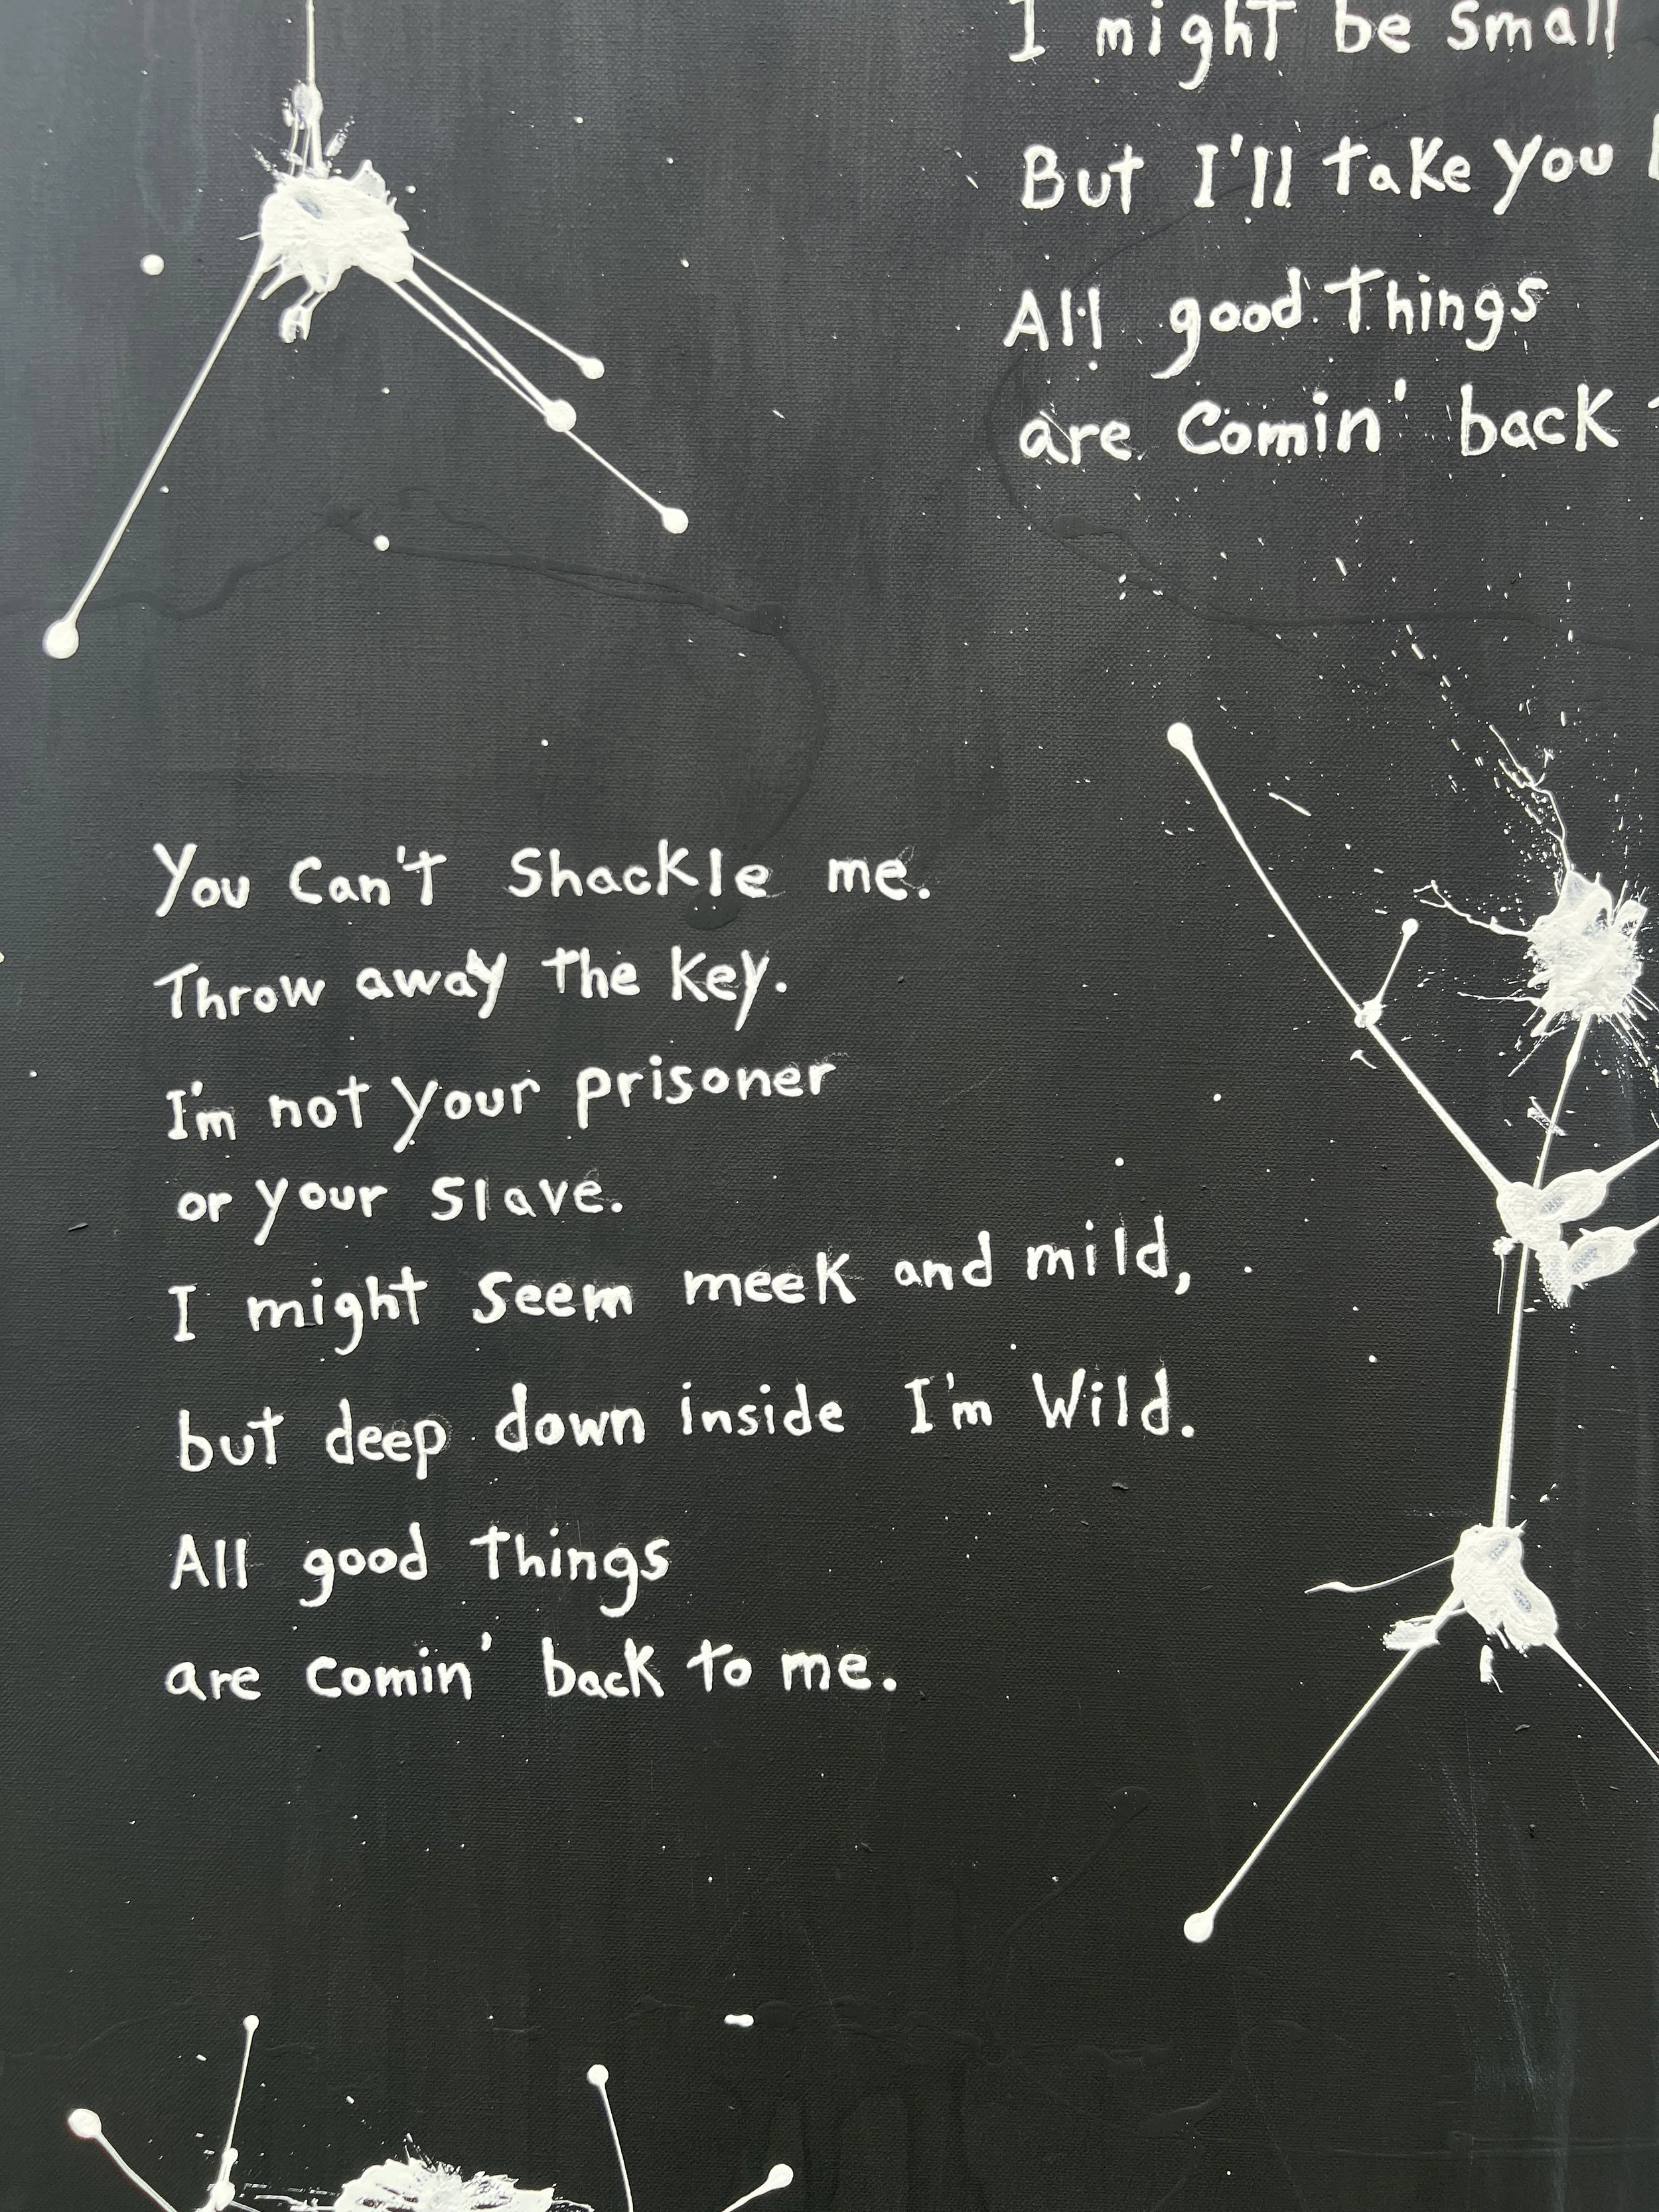 I might be small
But I'll take you
All good things
are comin' back
You can't shackle me.
Throw away the key.
I'm not your prisoner
or your slave.
I might seem meek and mild,
but deep down inside I'm wild.
All good things
are comin' back to me.